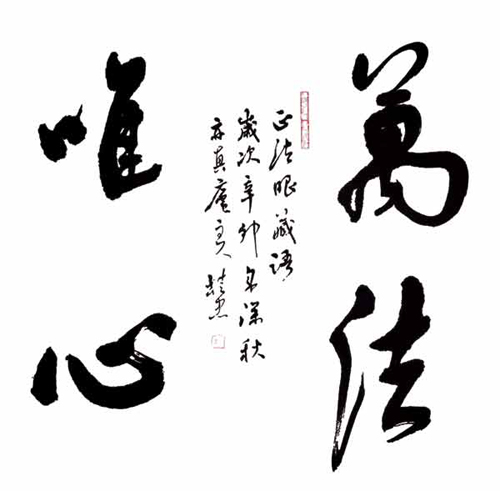 萬法
唯心
正法眼藏語
歲次辛卯年深秋
亦真廬主人